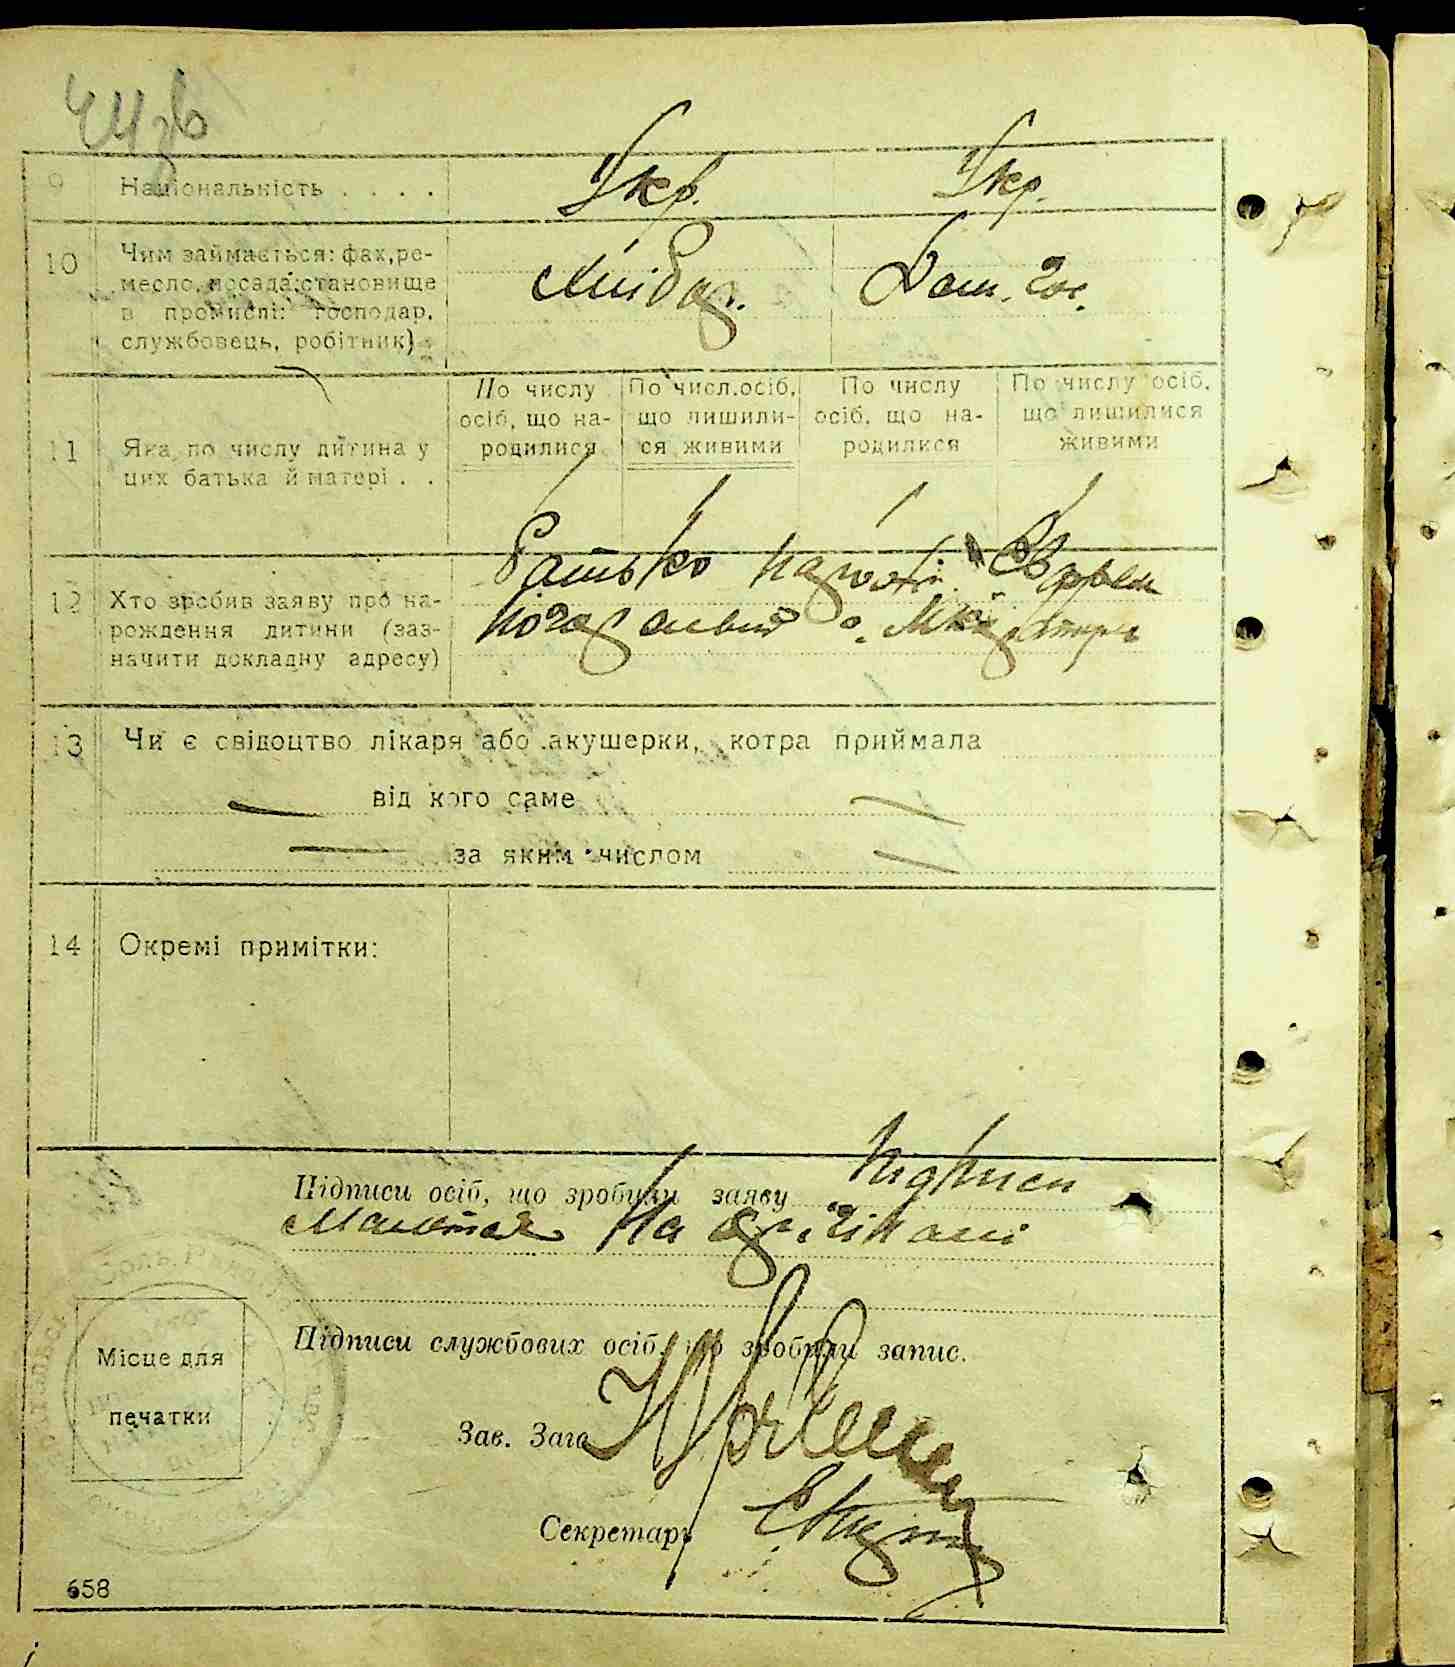 9 Національність . . . . Укр. Укр.
10 Чим займається: фах, ре-
месло, посада, становище
в промислі: господар,
службовець, робітник)
Хлібор. Дом. гос.
По числу осіб, що на- родилися
По числ. осіб, що лишили- ся живими
По числу осіб, що на- родилися
По числу осіб, що лишилися живими
11 Яка по числу дитина у
цих батька й матері . .
1 1 1 1
12 Хто зробив заяву про на-
рождення дитини (заз-
начити докладну адресу)
Батько
13 Чи є свідоцтво лікаря або акушерки, котра приймала
— від кого саме —
— за яким числом —
14 Окремі примітки:
Підписи осіб, що зробили заяву Підписи
на оригіналі
Підписи службових осіб, що зробили запис.
Місце для
печатки
Зав. Заго
Секретарь
658